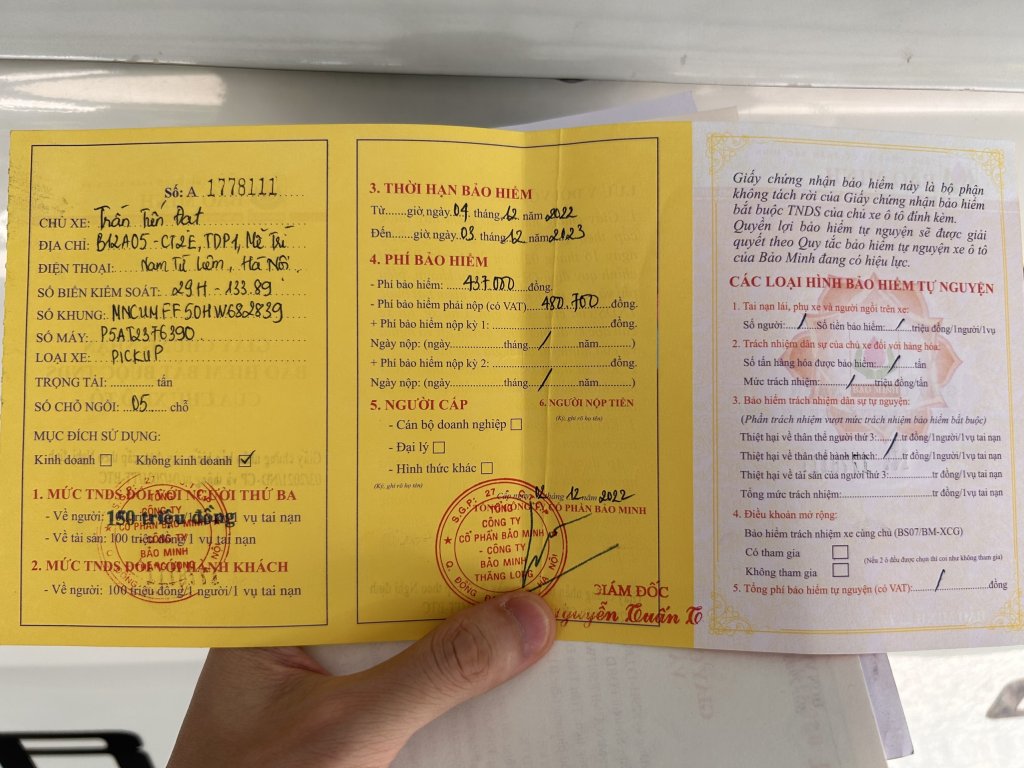 Số: A 1778111
CHỦ XE: Trần Tiến Đạt
ĐỊA CHỈ: B12A05 - CT2E, TDP1, Mễ Trì
ĐIỆN THOẠI: Nam Từ Liêm, Hà Nội
SỐ BIỂN KIỂM SOÁT: 29H - 133.89
SỐ KHUNG: MNCUMFF50HW682839
SỐ MÁY: P5AT2376390
LOẠI XE: PICKUP
TRỌNG TẢI: ............ tấn
SỐ CHỖ NGỒI: ..05...... chỗ
MỤC ĐÍCH SỬ DỤNG:
Kinh doanh Không kinh doanh
1. MỨC TNDS ĐỐI VỚI NGƯỜI THỨ BA
- Về người: 150 triệu đồng/1 người/1 vụ tai nạn
- Về tài sản: 100 triệu đồng/1 vụ tai nạn
2. MỨC TNDS ĐỐI VỚI HÀNH KHÁCH
- Về người: 100 triệu đồng/1 người/1 vụ tai nạn
TỔNG
CÔNG TY
CỔ PHẦN BẢO MINH
- CÔNG TY
BẢO MINH
THĂNG LONG
3. THỜI HẠN BẢO HIỂM
Từ.......giờ ngày.04. tháng.12. năm.2022
Đến.......giờ ngày.03. tháng.12. năm.2023
4. PHÍ BẢO HIỂM
- Phí bảo hiểm: 437.000 đồng.
- Phí bảo hiểm phải nộp (có VAT) 480.700 đồng.
+ Phí bảo hiểm nộp kỳ 1: ............ đồng.
Ngày nộp: (ngày............tháng.../...năm..........)
+ Phí bảo hiểm nộp kỳ 2: ............ đồng.
Ngày nộp: (ngày............tháng.../...năm..........)
5. NGƯỜI CẤP 6. NGƯỜI NỘP TIỀN
(Ký, ghi rõ họ tên)
- Cán bộ doanh nghiệp
- Đại lý
- Hình thức khác
(Ký, ghi rõ họ tên)
Cấp ngày 02 tháng 12 năm 2022
TỔNG CÔNG TY CỔ PHẦN BẢO MINH
TỔNG
CÔNG TY
CỔ PHẦN BẢO MINH
- CÔNG TY
BẢO MINH
THĂNG LONG
GIÁM ĐỐC
Nguyễn Tuấn
Giấy chứng nhận bảo hiểm này là bộ phận
không tách rời của Giấy chứng nhận bảo hiểm
bắt buộc TNDS của chủ xe ô tô đính kèm.
Quyền lợi bảo hiểm tự nguyện sẽ được giải
quyết theo Quy tắc bảo hiểm tự nguyện xe ô tô
của Bảo Minh đang có hiệu lực.
CÁC LOẠI HÌNH BẢO HIỂM TỰ NGUYỆN
1. Tai nạn lái, phụ xe và người ngồi trên xe:
Số người:..../....Số tiền bảo hiểm:..../....triệu đồng/1người/1vụ
2. Trách nhiệm dân sự của chủ xe đối với hàng hóa:
Số tấn hàng hóa được bảo hiểm:..../....tấn
Mức trách nhiệm:..../....triệu đồng/tấn
3. Bảo hiểm trách nhiệm dân sự tự nguyện:
(Phần trách nhiệm vượt mức trách nhiệm bảo hiểm bắt buộc)
Thiệt hại về thân thể người thứ 3:..../....tr đồng/1người/1vụ tai nạn
Thiệt hại về thân thể hành khách:..../....tr đồng/1người/1vụ tai nạn
Thiệt hại về tài sản của người thứ 3:............tr đồng/1vụ tai nạn
Tổng mức trách nhiệm:............tr đồng/1vụ tai nạn
4. Điều khoản mở rộng:
Bảo hiểm trách nhiệm xe cùng chủ (BS07/BM-XCG)
Có tham gia
(Nếu 2 ô đều được chọn thì coi như không tham gia)
Không tham gia
5. Tổng phí bảo hiểm tự nguyện (có VAT):..../....đồng